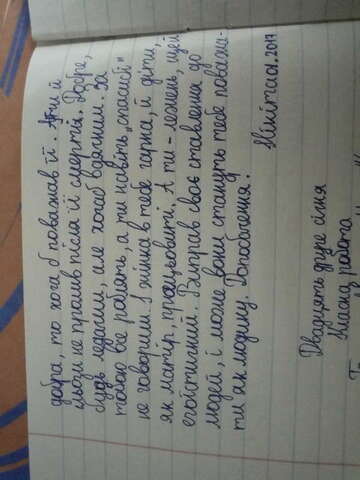 добра, то хоча б поважав її. А ти й
сльози не пролив після її смерті. Добре,
будь ледачим, але хоча б вдячним. За
тобою все роблять, а ти навіть „спасибі"
не говориш. І жінка в тебе гарна, й діти,
як матір, працьовиті. А ти – лежень, ще й
егоїстичний. Виправ своє ставлення до
людей, і може вони стануть тебе поважа-
ти як людину. До побачення.
Двадцять друге січня
Класна робота